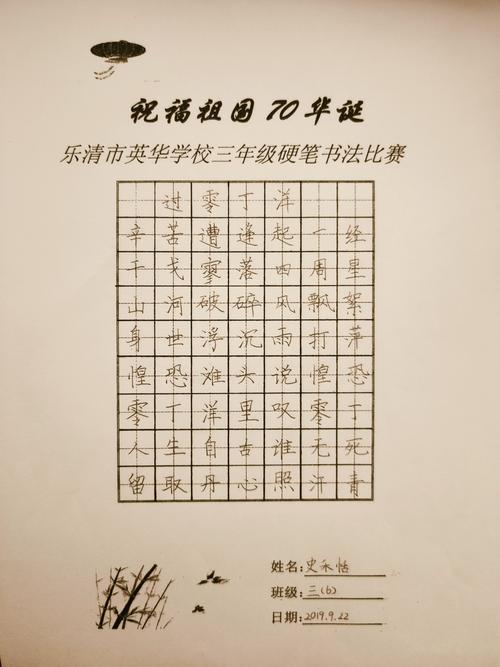 祝福祖国70华诞
乐清市英华学校三年级硬笔书法比赛
过零丁洋
辛苦遭逢起一经
干戈寥落四周星
山河破碎风飘絮
身世浮沉雨打萍
惶恐滩头说惶恐
零丁洋里叹零丁
人生自古谁无死
留取丹心照汗青
姓名:史永恬
班级:三(6)
日期:2019.9.22